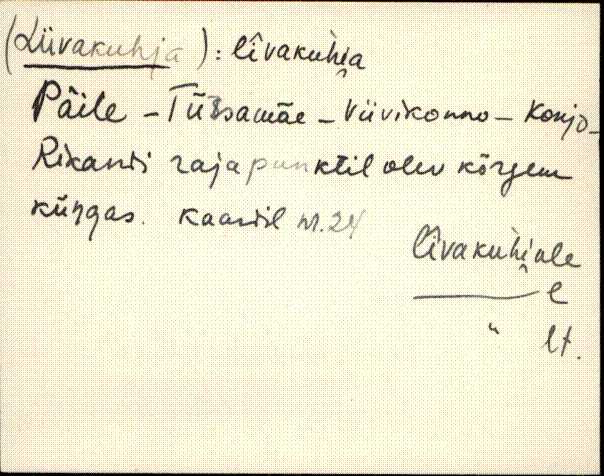 (Liivakuhja): lîvakuhi̯a
Päite - Türsamäe - Viivikonno - Konjo-
Rikandi rajapunktil olev kõrgem
küngas. Kaardil nr. 24
lîvakuhi̯ale
e
" lt.